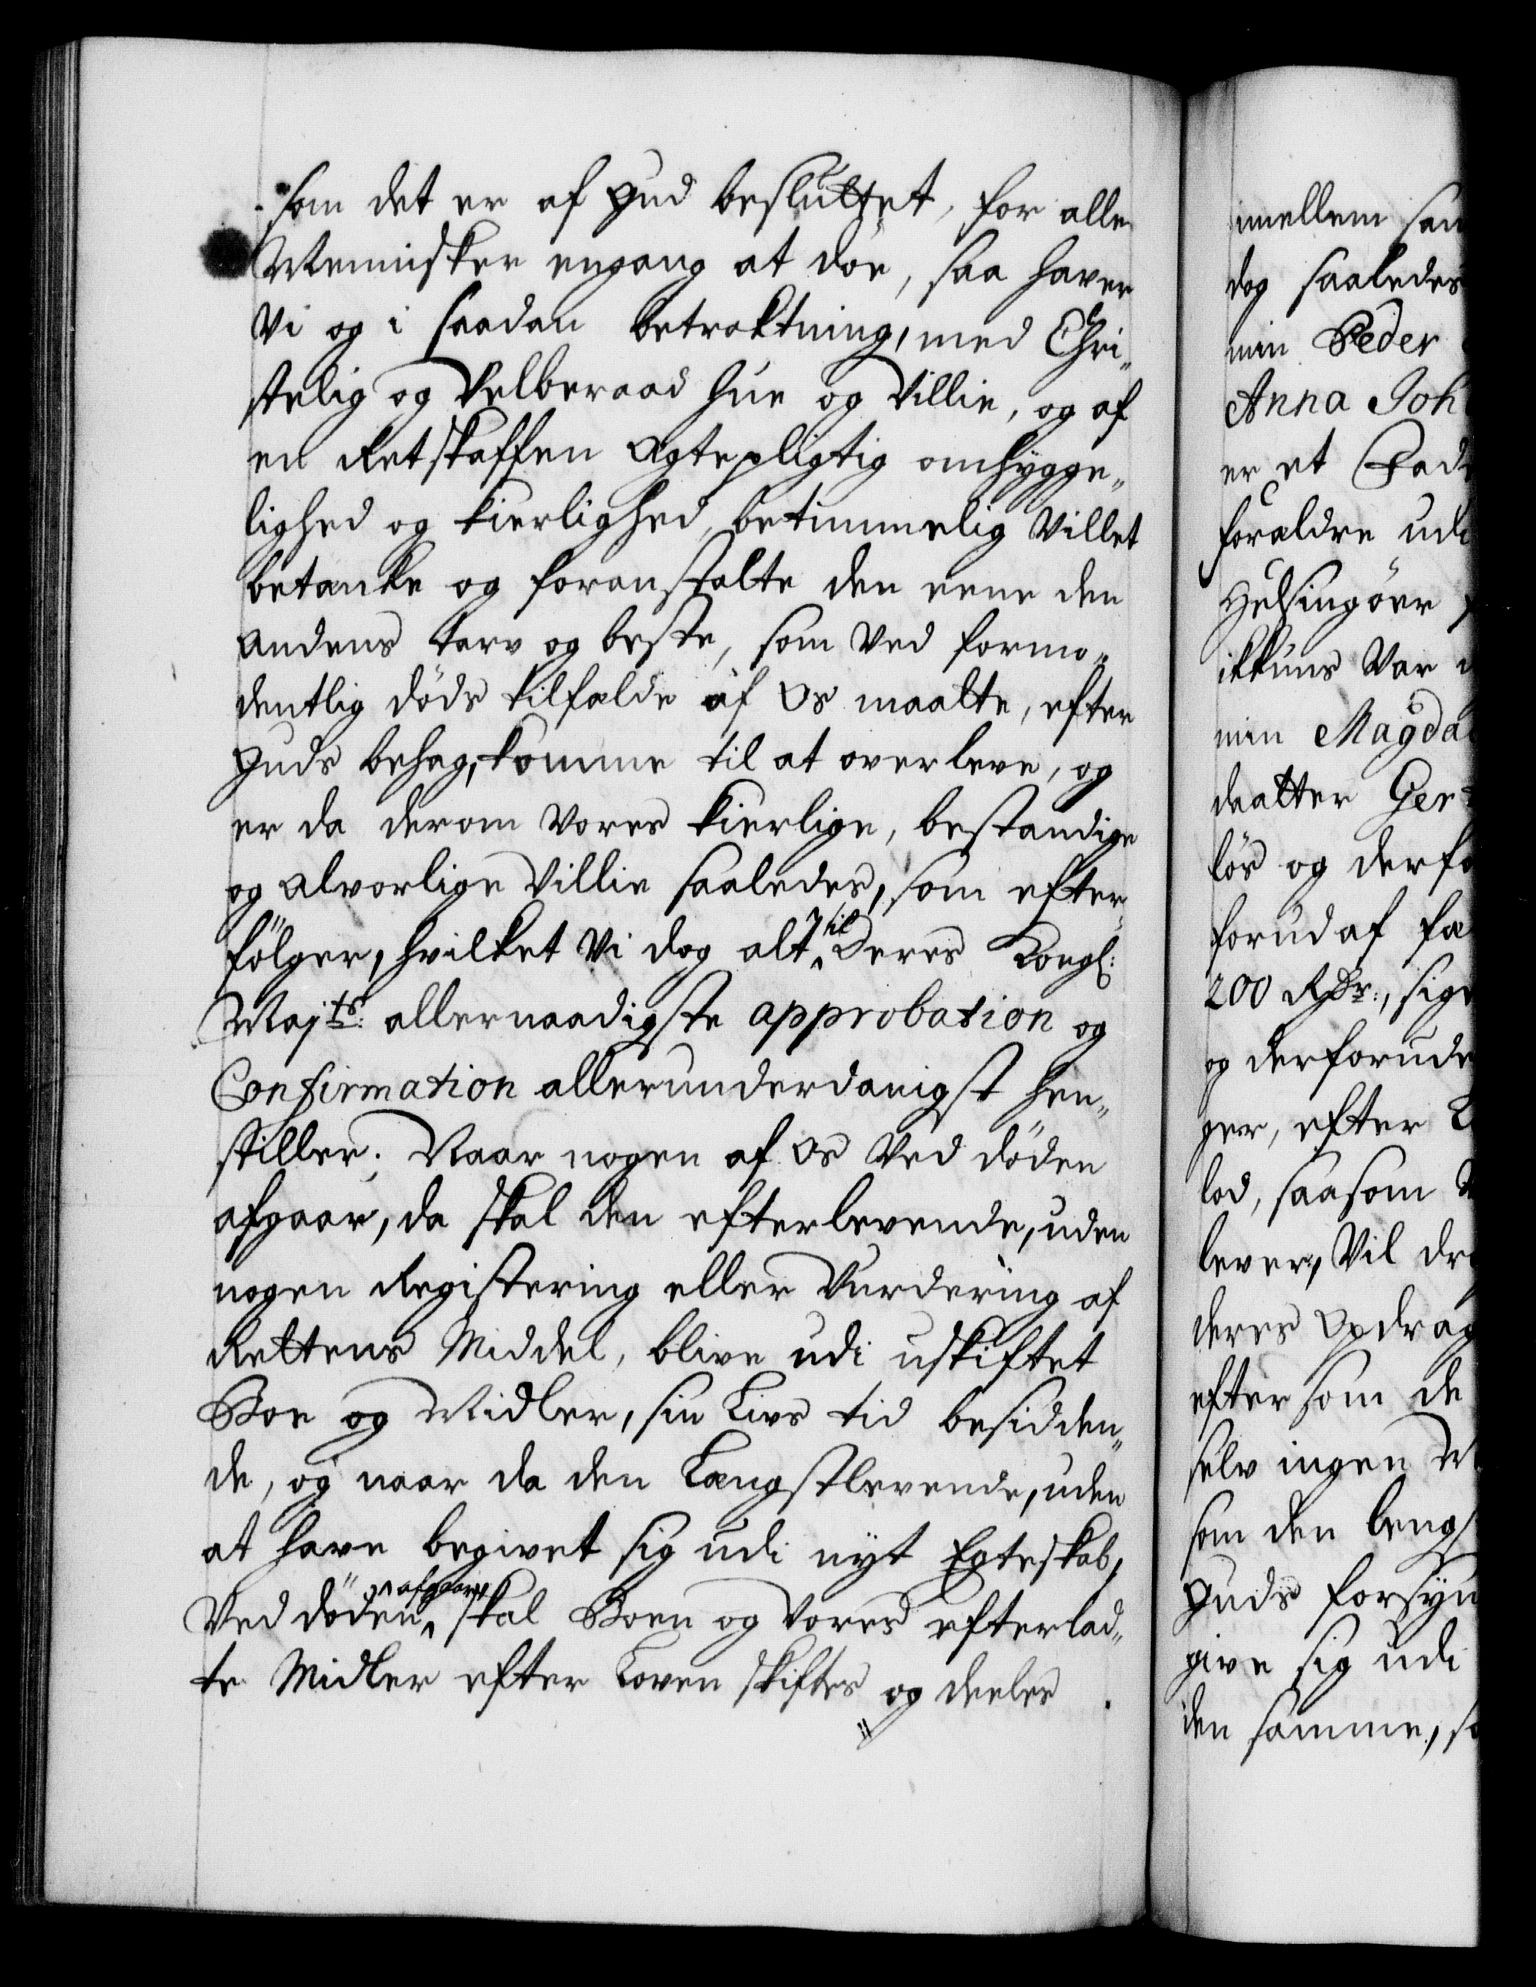 som det er af Gud besluttet, for alle
Mennisker engang at döe, saa haver
Vi og i saadan betraktning, med Chri„
stelig og Velberaad hue og Villie, og af
en Retskaffen Ægtepligtig omhygge„
lighed og kierlighed, betimmelig Villet
betænke og foranstalte den eene den
andens tarv og beste, som Ved formo„
dentlig döds tilfælde af Os maatte, efter
Guds behag, komme til at overleve, og
er da derom Vores kierlige, bestandige
og alvorlige Villie saaledes, som efter„
fölger, hvilket Vi dog alt til Deres Kongl:
Majts: allernaadigste approbation og
Confirmation allerunderdanigst hen„
stiller. Naar nogen af Os Ved döden
afgaar, da skal den efterlevende, uden
nogen Registering eller Vurdering af
Rettens Middel, blive udi uskiftet
Boe og Midler, sin Livs tid besidden„
de, og naar da den Længstlevende, uden
at have begivet sig udi nyt Egteskab,
Ved döden afgaar, skal Boen og Vores efterlad„
te Midler efter Loven skiftes og deeles
imellem
dog saaledes
min Peder
Anna Joh
er et
forældre udi
Helsingöer
ikkuns Var
min Magda
daatter Ger
lös og derfo
forud af fæ
200 Rdr:, sige
og derforude
ger, efter
lod, saasom
lever, Vil
deres Opdrag
eftersom de
selv ingen
som den leng
Guds forsyn
give sig udi
den samme,